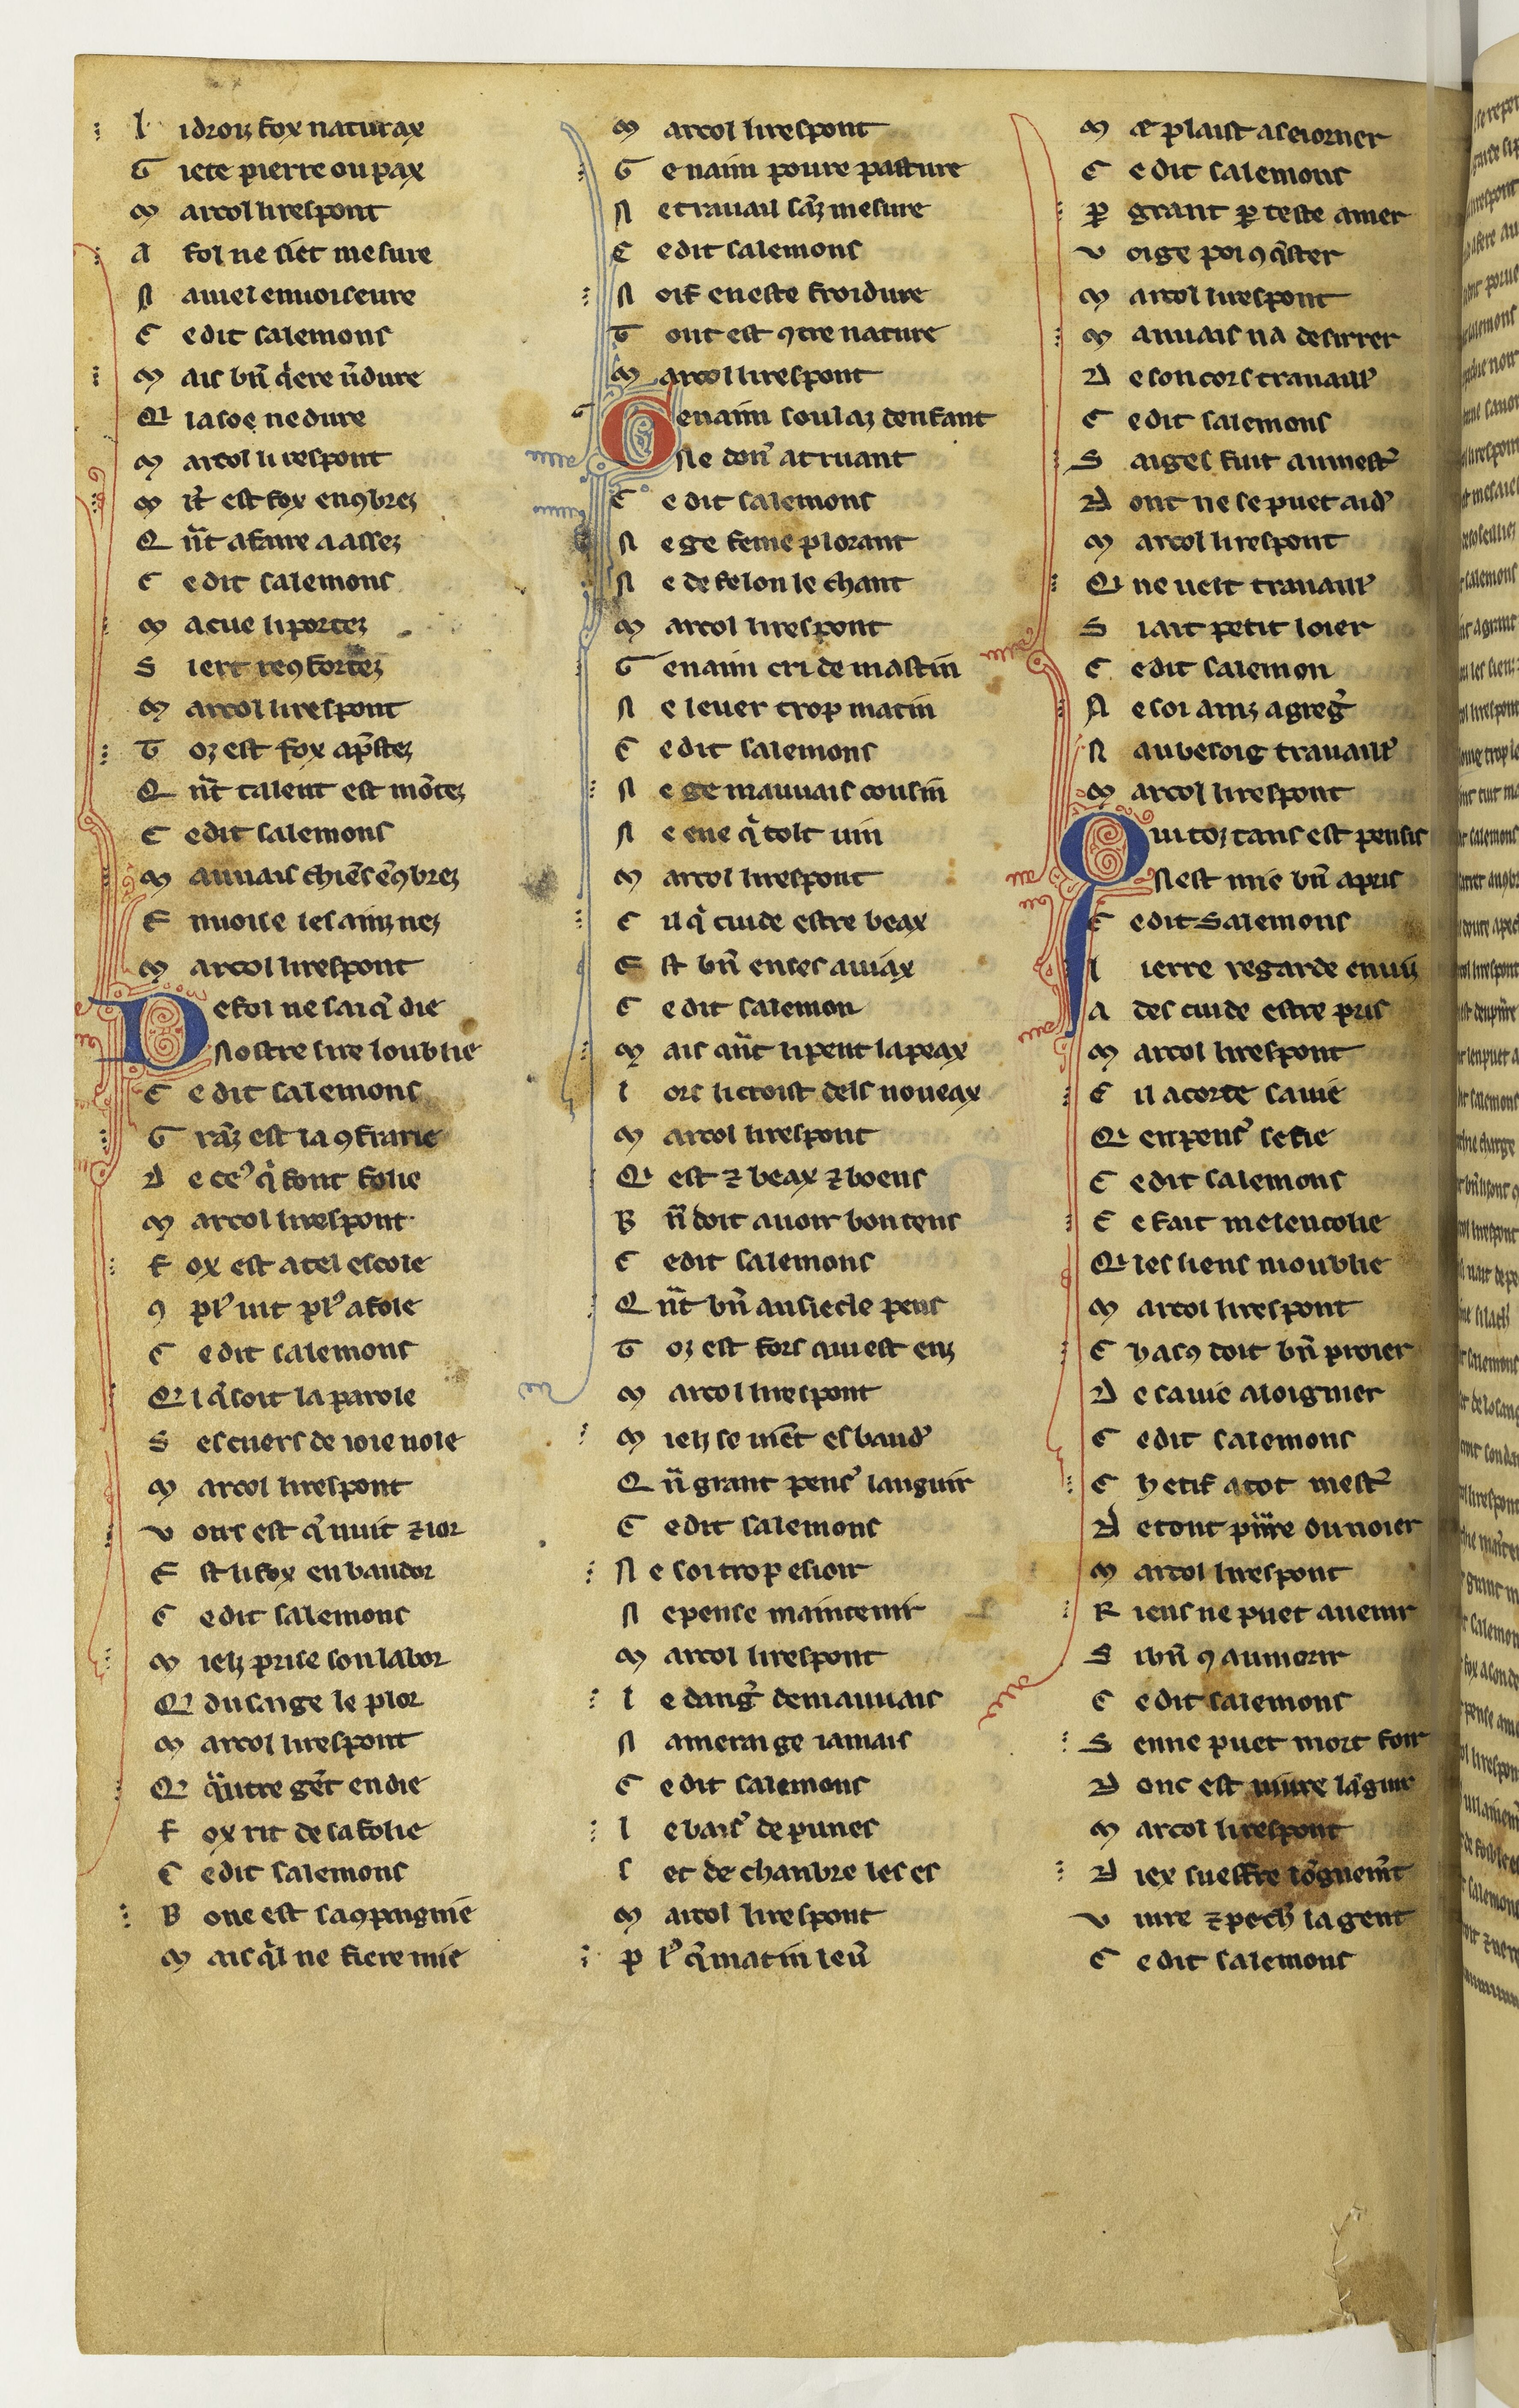 L i droiz fox naturax
G iete pierre ou pax
M arcol li respont
A fol ne siet mesure
N auiel enuoiseure
C e dit salemons
M ais bn̄ qͥere ūdure
Qͥ ia soe ne dure
M arcol li respont
M lt̄ est fox enꝯbrez
Q n̄t a faire a assez
C e dit salemons
M acue li portez
S iert reꝯfortez
M arcol li respont
T oz est fox ap̄stez
Q n̄t talent est mōtez
C e dit salemons
M auuais chiēs ēꝯbrez
E nuoise les ainz nez
M arcol li respont
De fol ne sai qͥ die
Nostre sire loublie
C e dit salemons
G rāz est la ꝯfrarie
D e ceꝰ qͥ font folie
M arcol li respont
F ox est a tel escole
ꝯ plꝰ uit plꝰ afole
C e dit salemons
Q l qͥ soit la parole
S es cuers de ioie uole
M arcol li respont
V ous est qͥ nuit ⁊ ior
E st li fox en baudor
C e dit salemons
M ielz prise son labor
Qͥ du sage le plor
M arcol li respont
Qͥ qͣ utre gēt en die
F ox rit de sa folie
C e dit salemons
B one est sa ꝯpaignie
M ais qͥl ne fiere mie
M arcol li respont
G e naim poure pasture
N e trauail sāz mesure
C e dit salemons
N oif en este froidure
T out est ꝯtre nature
M arcol li respont
Ge naim soulaz denfant
Ne don̄ a truant
C e dit salemons
N e ge feme plorant
N e de felon le chant
M arcol li respont
G e naim cri de mastin
N e leuer trop matin
C e dit salemons
N e ge mauuais cousin
N e eue qͥ tolt uin
M arcol li respont
C il qͥ cuide estre beax
E st bn̄ en ses auiax
C e dit salemon
M ais qn̄t li pent la peax
L ors li croist dels noueax
M arcol li respont
Qͥ est ⁊ beax ⁊ boens
B n̄ doit auoir bon tens
C e dit salemons
Q n̄t bn̄ au siecle pens
T oz est fors qui est enz
M arcol li respont
M ielz se uient esbaudꝰ
Q ū grant pensꝰ languir
C e dit salemons
N e soi trop esioir
N e pense maintenir
M arcol li respont
L e dang̾ de mauuais
N amerai ge iamais
C e dit salemons
L e baisꝰ de punes
L et de chanbre les es
M arcol li respont
P lꝰ qͥ matin leū
M e plaist a seiorner
C e dit salemons
ꝑ grant ꝑ teste amer
V oi ge poi ꝯqͥster
M arcol li respont
M auuais na desirrer
D e son cors trauaillꝰ
C e dit salemons
S aiges fuit au mestꝰ
D ont ne se puet aidꝰ
M arcol li respont
Qͥ ne uelt trauaillꝰ
S i ait petit loier
C e dit salemon
N e soi ainz agreg̾
N au besoig trauaillꝰ
M arcol li respont
Qui toz tans est pensis
Nest mie bn̄ apris
C e dit Salemons
L ierre regarde enuiz
A des cuide estre pris
M arcol li respont
C il acorte sa uie
Qͥ en pensꝰ se fie
C e dit salemons
C e fait melencolie
Qͥ les siens moublie
M arcol li respont
C hascꝰ doit bn̄ proier
D e sa uie aloignier
C e dit salemons
C hetif a tot mestꝰ
D e tout
M arcol li respont
R iens ne puet auenir
S i bn̄ ꝯ au morir
C e dit salemons
S en ne puet mort foir
D onc est uiure lāguir
M arcol li respont
D iex sueffre lōguemt̄
V iure ⁊ pech̾ la gent
C e dit salemons